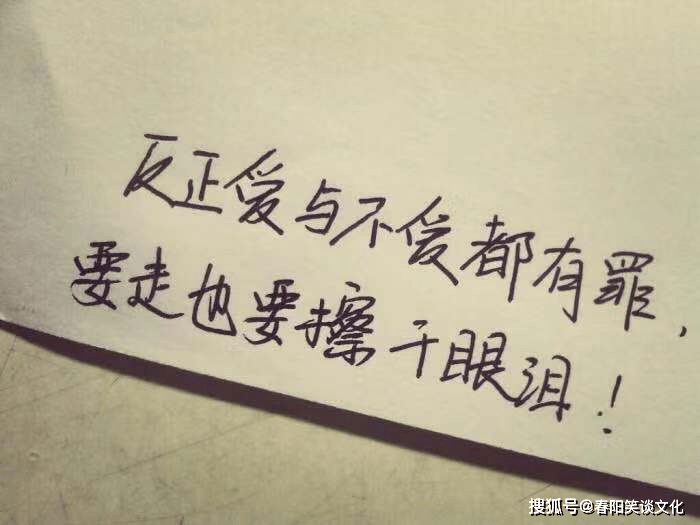 反正爱与不爱都有罪，
要走也要擦干眼泪！
搜狐号@春阳笑谈文化